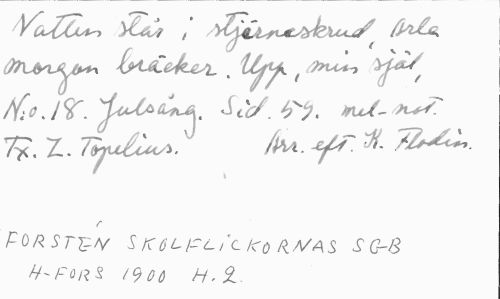 Natten står i stjärneskrud, Arla
morgon bräcker. Upp, min själ,
N:o. 18. Julsång. Sid. 59. mel-not.
Tx. Z. Topelius. Arr. eft. K. Flodin.
FORSTÉN SKOLFLICKORNAS SGB
H-FORS 1900 H.2.